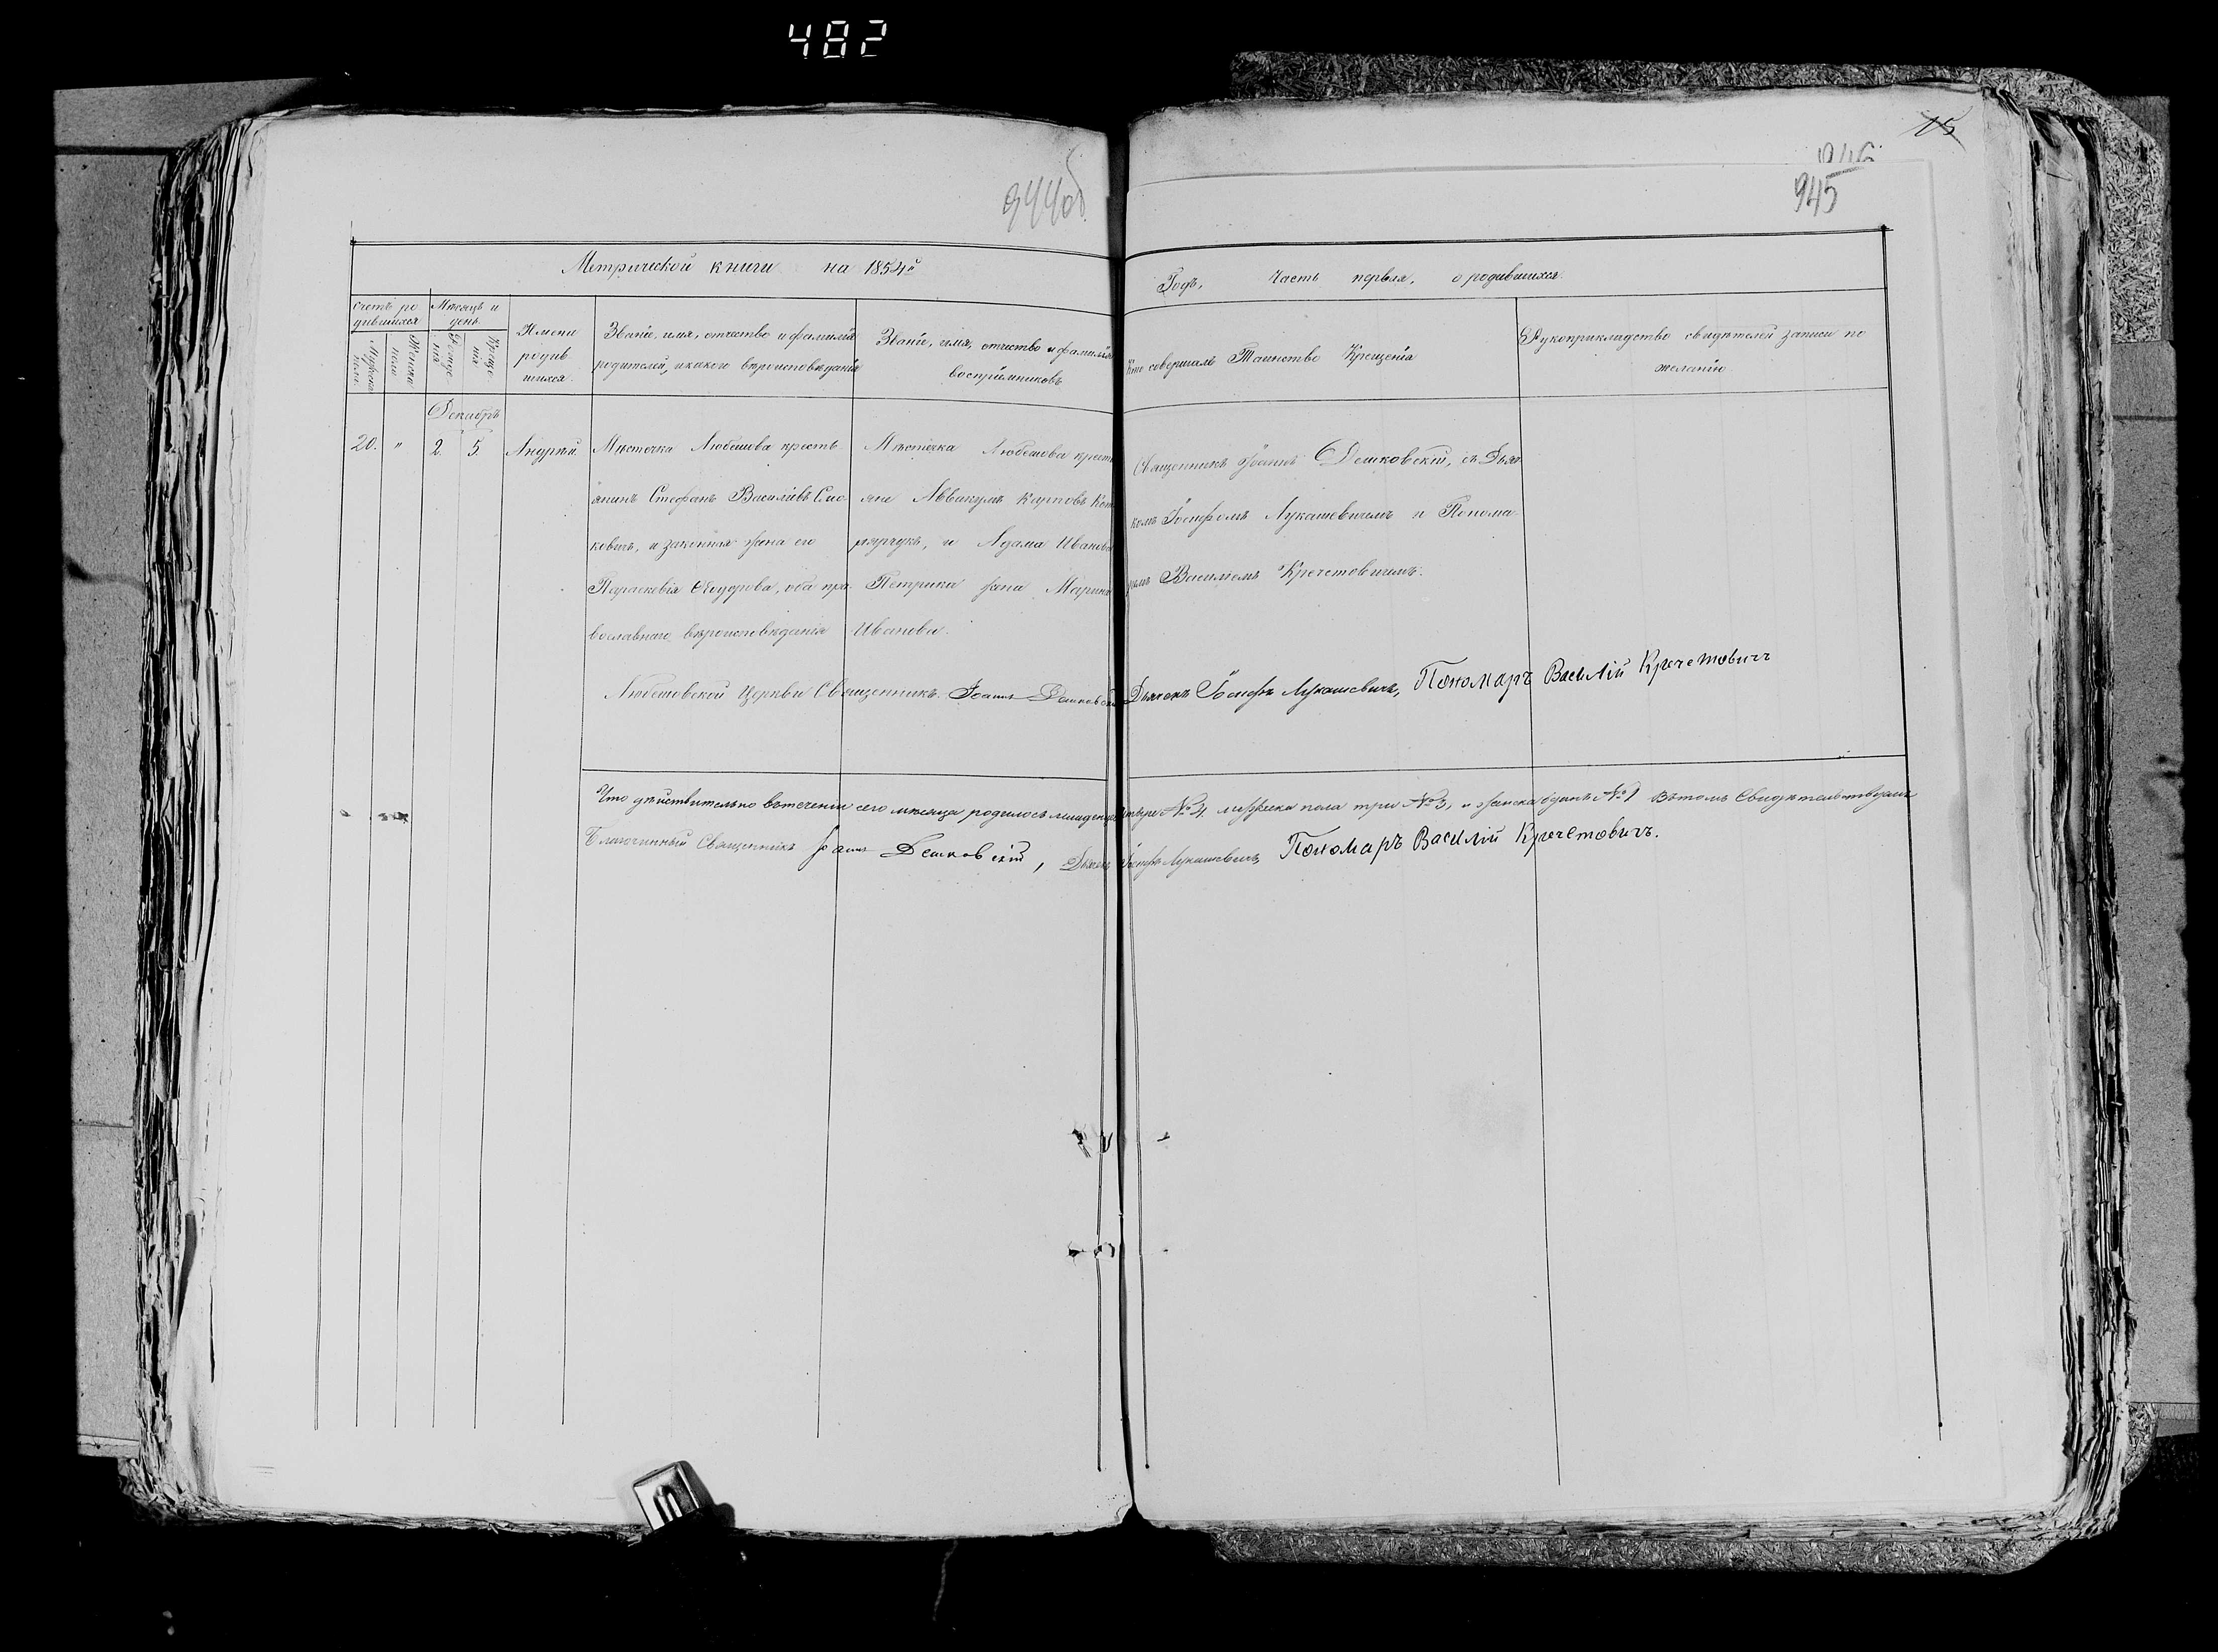 482
15
944об
945
Метрической книги на 1854й
Годъ, Часть первая, о родившихся.
счетъ ро
дившихся
Мужеска
пола.
Женска
пола
Мѣсяцъ и
день.
Рожде
нія
Креще
нія
Имена
родив
шихся.
Званіе, имя, отчество и фамилія
родителей, и какого вѣроисповѣданія
Званіе, имя, отчество и фамилія
воспріемниковъ
Кто совершалъ Таинство Крещенія
Рукоприкладство свидѣтелей записи по
желанію
Декабрь
20. " 2. 5. Андрей.
Мѣстечка Любешова кресть
янинъ Стефанъ Василіевъ Смо
ковичъ, и законная жена его
Параскевія Ѳеодорова, оба пра
вославнаго вѣроисповѣданія
Мѣстечка Любешова кресть
яне Аввакумъ Карповъ
и Адама Иванова
Петрика жена Марина
Иванова.
Священникъ Іоаннъ Демковскій, съ Дьяч
комъ Іосифомъ Лукашевичемъ и Понома
ремъ Василіемъ Кречетовичемъ.
Любешовской Церкви Священникъ Іоаннъ Демковскій Дьячекъ Іосифъ Лукашевичъ, Пономаръ Василій Кречетовичъ
Что дѣйствительно въ теченіи сего мѣсяца родилось младенцевъ четыре №4, мужеска пола три №3, и женска одинъ №1 въ томъ Свидѣтельствуемъ
Благочинный Священникъ Іоаннъ Демковскій, Дьячекъ Іосифъ Лукашевичъ, Пономаръ Василій Кречетовичъ.